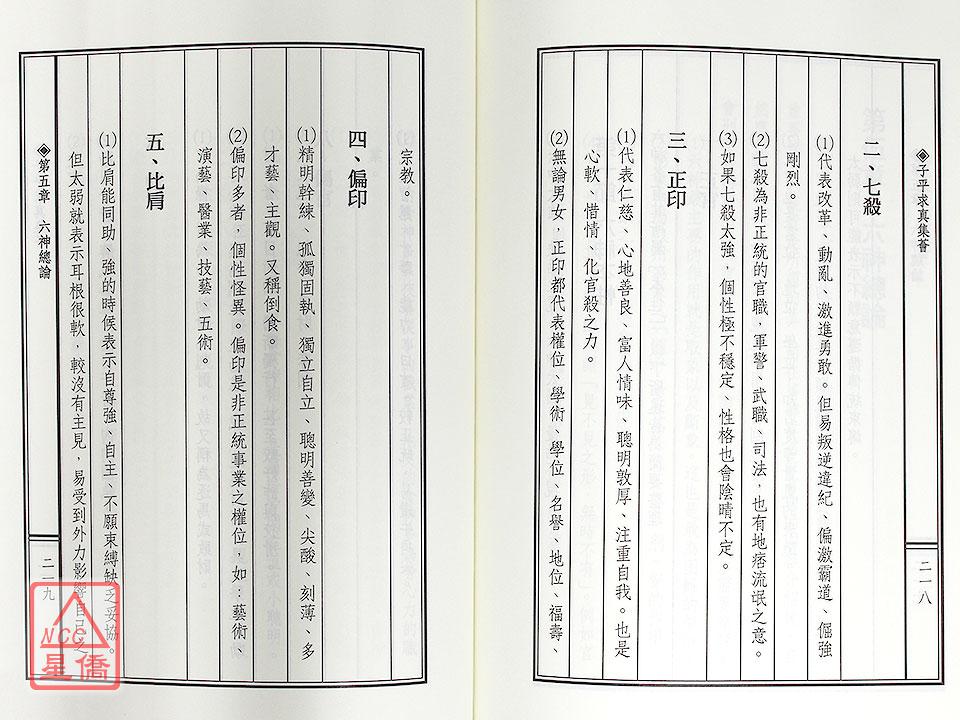 ◈子平求真集薈
二一八
二、七殺
⑴代表改革、動亂、激進勇敢。但易叛逆違紀、偏激霸道、倔強
剛烈。
⑵七殺為非正統的官職，軍警、武職、司法，也有地痞流氓之意。
⑶如果七殺太強，個性極不穩定、性格也會陰晴不定。
三、正印
⑴代表仁慈、心地善良、富人情味、聰明敦厚、注重自我。也是
心軟、惜情、化官殺之力。
⑵無論男女，正印都代表權位、學術、學位、名譽、地位、福壽、
宗教。
四、偏印
⑴精明幹練、孤獨固執、獨立自立、聰明善變、尖酸、刻薄、多
才藝、主觀。又稱倒食。
⑵偏印多者，個性怪異。偏印是非正統事業之權位，如：藝術、
演藝、醫業、技藝、五術。
五、比肩
⑴比肩能同助、強的時候表示自尊強、自主、不願束縛缺乏妥協。
但太弱就表示耳根很軟，較沒有主見，易受到外力影響自己之
◈第五章　六神總論
二一九
NCC
星僑